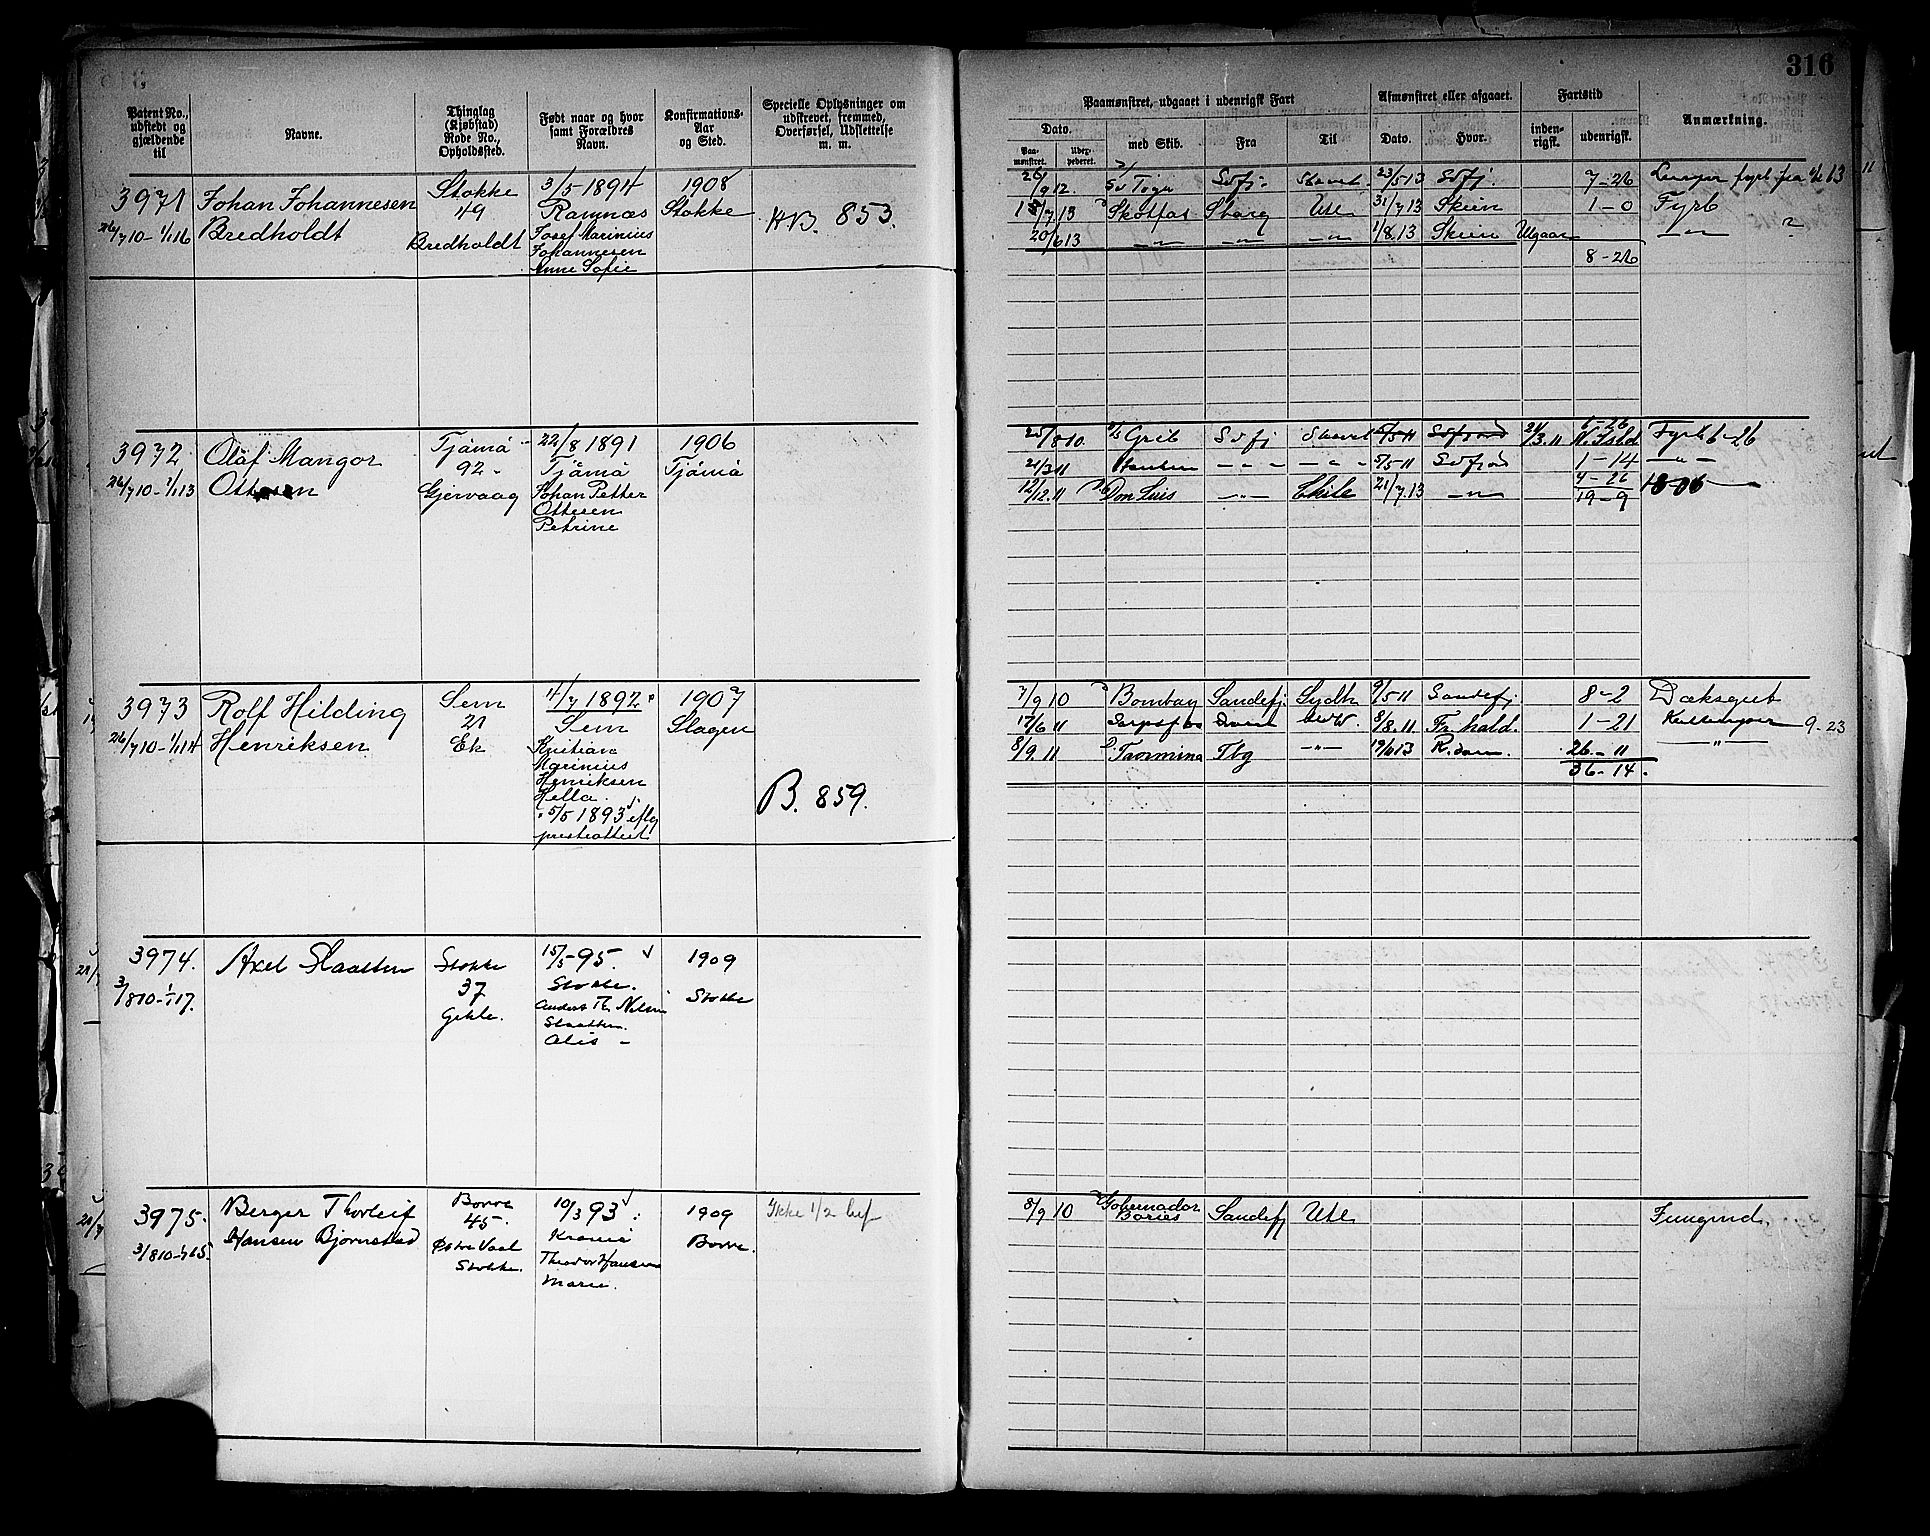 316
Patent No., udstedt og gjældende til
Navne.
Thinglag (Kjøbstad) Rode No., Opholdssted.
Født naar og hvor samt Forældres Navn.
Konfirmations-Aar og Sted.
Specielle Oplysninger om udskrevet, fremmed, Overførsel, Udslettelse m. m.
Paamønstret, udgaaet i udenrigsk Fart
Afmønstret eller afgaaet.
Fartstid
Anmærkning.
Dato.
Paamønstret.
med Skib.
Fra
Til
Dato.
Hvor.
indenrigsk.
udenrigsk.
3971
26/7 10 - 1/1 16
Johan Johannesen
Bredholdt
Stokke
49
Bredholdt
3/5 1894
Ramnæs
Josef Marinius
Johannesen
Anne Sofie
1908
Stokke
H.B. 853.
26/9 12. Sdfj. 23/5 13 Sdfj. 7-26
Skotfos Sbarg Ute 31/7 13 Skien 1-0 Fyrb
20/6 13 -"- -"- -"- 1/8 13 Skien Utgaar -"- ?
8-26
3972
26/7 10 - 1/1 13
Olaf Mangor
Ottesen
Tjømø
92
Gjervaag
22/8 1891
Tjømø
Johan Petter
Ottesen
Petrine
1906
Tjømø
25/8 10. Grib Sdfj 21/3 11 6-26 Fyrb 6-26
21/3 11 5/5 11 Sdfjord 1-14 -"-
12/12 11 Don Luis -"- Chile 21/7 13 -"-
19-9
3973
26/7 10 - 1/1 14
Rolf Hilding
Henriksen
Sem
21
Ek
4/7 1892
Sem
Kristian
Marinius
Henriksen
Hella.
5/5 1893 eflg
presteattest
1907
Slagen
B. 859.
7/9 10 Bombay Sandefj. Sydh 9/5 11 Sandefj 8-2 Dæksgut
17/6 11 8/8 11 Fr.hald. 1-21 9-23
8/9 11 Taormina Tbg -"- 26-11 -"-
36-14.
3974.
3/8 10 - 1/1 17.
Axel Slaatten
Stokke
37
Gjekle.
15/5 - 95.
Stokke.
Anders Th. Nilsen
Slaatten.
Alis -
1909
Stokke
3975.
3/8 10 - 1/1 15.
Berger Thorleif
Hansen Bjørnstad
Borre
45.
Østre Vaal
Stokke.
10/3 93
Krania
Theodor Hansen
Marie.
1909
Borre.
Ikke 1/2 bef
8/9 10 Gobernador Bories Sandefj Ute Jungmd.